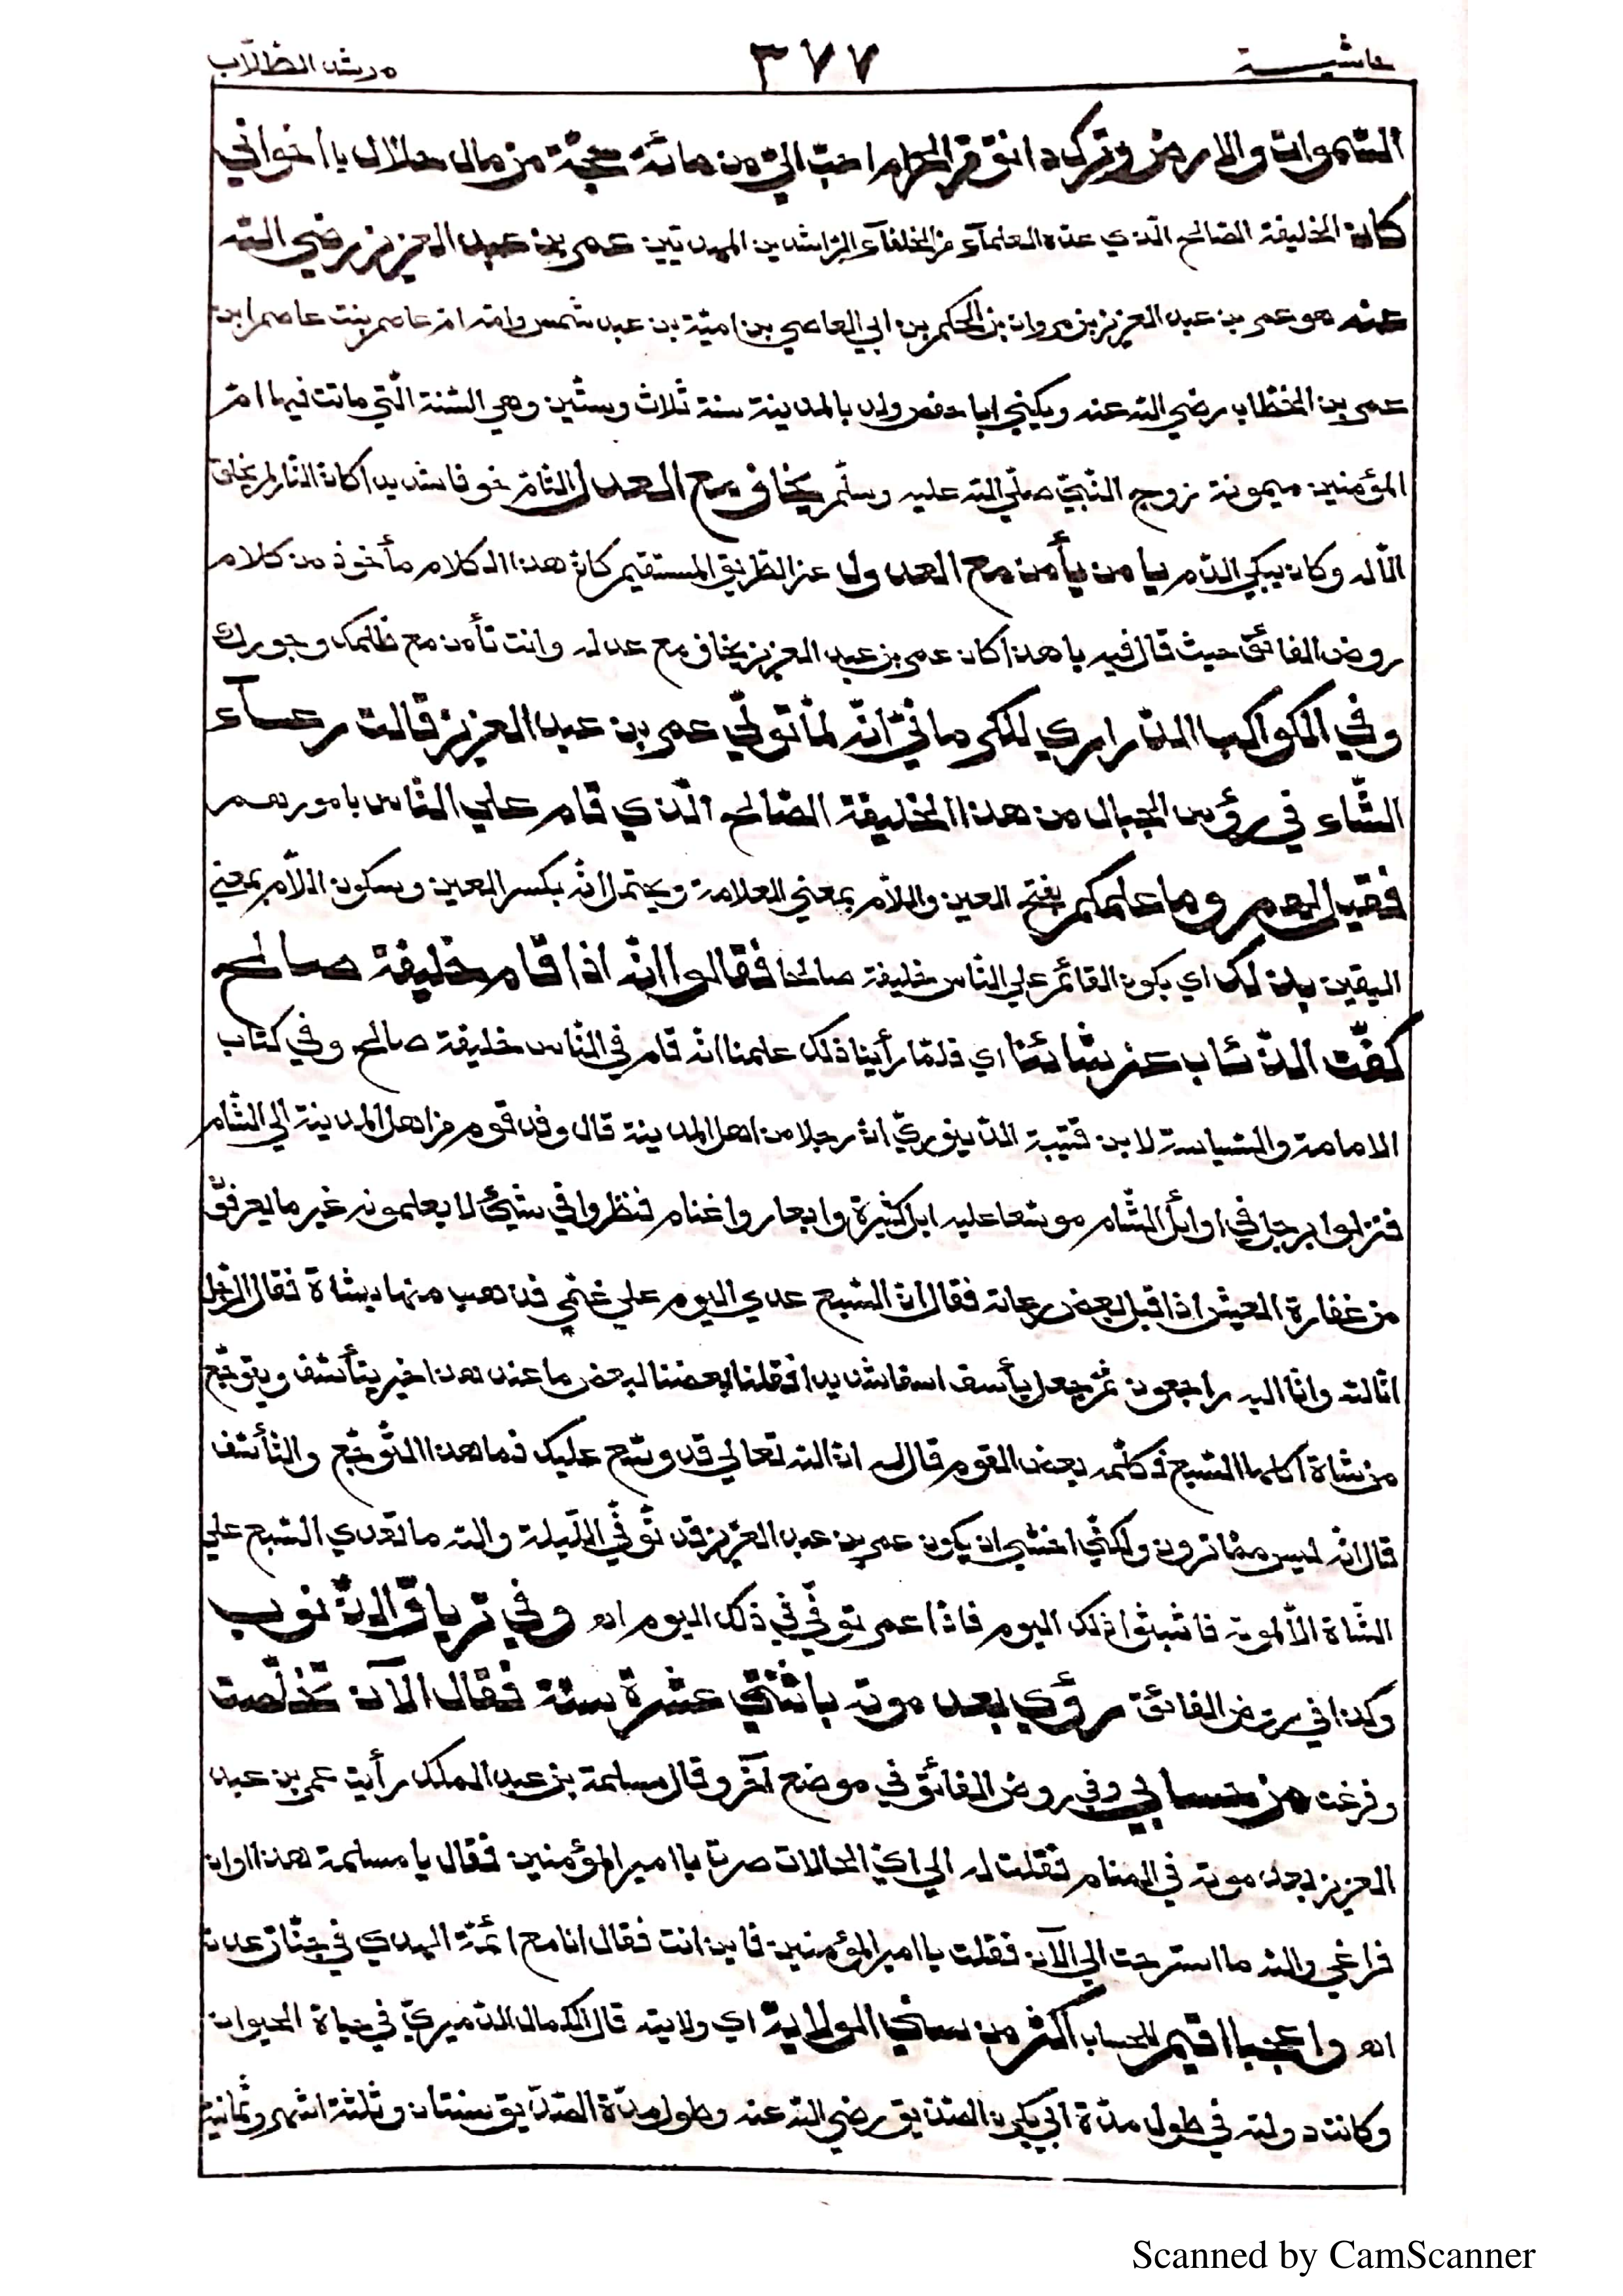 حاشية ٣٧٧ مرشد الطلّاب
السّموات والارض وترك دانق من الحرام احبّ اليّ من مائة حجّة من مال حلال يا اخواني
كان الخليفة الصّالح الّذي عدّه العلمآء من الخلفآء الرّاشدين المهديّين عمر بن عبد العزيز رضي الله
عنه هو عمر بن عبد العزيز بن مروان بن الحكم بن ابي العاصي بن اميّة بن عبد شمس وامّه امّ عاصم بنت عاصم ابن
عمر بن الخطّاب رضي الله عنه ويكنى ابا حفص ولد بالمدينة سنة ثلاث وستّين وهي السّنة الّتي ماتت فيها امّ
المؤمنين ميمونة زوج النّبيّ صلّي الله عليه وسلّم يخاف مع العدل التّامّ خوفا شديدا كانّ النّار لم يخلق
الّا له وكان يبكي الدّم يا من يأمن مع العدول عن الطّريق المستقيم كانّ هذا الكلام مأخوذ من كلام
روض الفائق حيث قال فيه يا هذا كان عمر بن عبد العزيز يخاف مع عدله وانت تأمن مع ظلمك وجورك
وفي الكواكب الدّراري للكرمانيّ انّه لمّا تولّي عمر بن عبد العزيز قالت رعآء
الشّاء في رؤس الجبال من هذا الخليفة الصّالح الّذي قام علي النّاس بامورهم
فقيل لهم وما علمكم بفتح العين واللّام بمعني العلامة ويحتمل انّه بكسر العين وسكون اللّام بمعني
اليقين بذلك اي بكون القائم علي النّاس خليفة صالحا فقالوا انّه اذا قام خليفة صالح
كفّت الذّئاب عن شائنا اي فلمّا رأينا ذلك علمنا انّه قام في النّاس خليفة صالح وفي كتاب
الامامة والسّياسة لابن قتيبة الدّينوريّ انّ رجلا من اهل المدينة قال وفد قوم من اهل المدينة الي الشّام
فنزلوا برجل في اوائل الشّام موسّعا عليه ابل كثيرة وابعار واغنام فنظروا في شيئ لا يعلمونه غير ما يعرفوّ
من غفارة العيش اذ اقبل بعض رعاته فقال انّ السّبع عدي اليوم علي غنمي فذهب منها بشاة فقال الرّجل
انّا لله وانّا اليه راجعون ثمّ جعل يأسف اسفا شديدا فقلنا بعضنا لبعض ما عند هذا خير يتأسّف ويتوجّع
من شاة اكلها السّبع فكلّمه بعض القوم قال له انّ الله تعالي قد وسّع عليك فما هذا التّوجّع والتّأسّف
قال انّه ليس ممّا ترون ولكنّي اخشي ان يكون عمر بن عبد العزيز قد توفّي اللّيلة والله ما تعدي السّبع علي
الشّاة الّا لموته فاثبتوا ذلك اليوم فاذا عمر توفّي في ذلك اليوم اهـ وفي ترياق الذّنوب
وكذا في روض الفائق رؤي بعد موته باثنتي عشرة سنة فقال الآن تخلّصت
وفرغت من حسابي وفي روض الفائق في موضع آخر وقال مسلمة بن عبد الملك رأيت عمر بن عبد
العزيز بعد موته في المنام فقلت له الي ايّ الحالات صرت يا امير المؤمنين فقال يا مسلمة هذا اوان
فراغي والله ما استرحت الي الآن فقلت يا امير المؤمنين فاين انت فقال انا مع ائمّة الهدي في جنّاز عدن
اهـ واعجبا اقيم للحساب اكثر من سني الولاية اي ولايته قال الكمال الدّميريّ في حياة الحيوان
وكانت دولته في طول مدّة ابي بكر الصّدّيق رضي الله عنه وطول مدّة الصّدّيق سنتان وثلثة اشهر وثمانية
Scanned by CamScanner